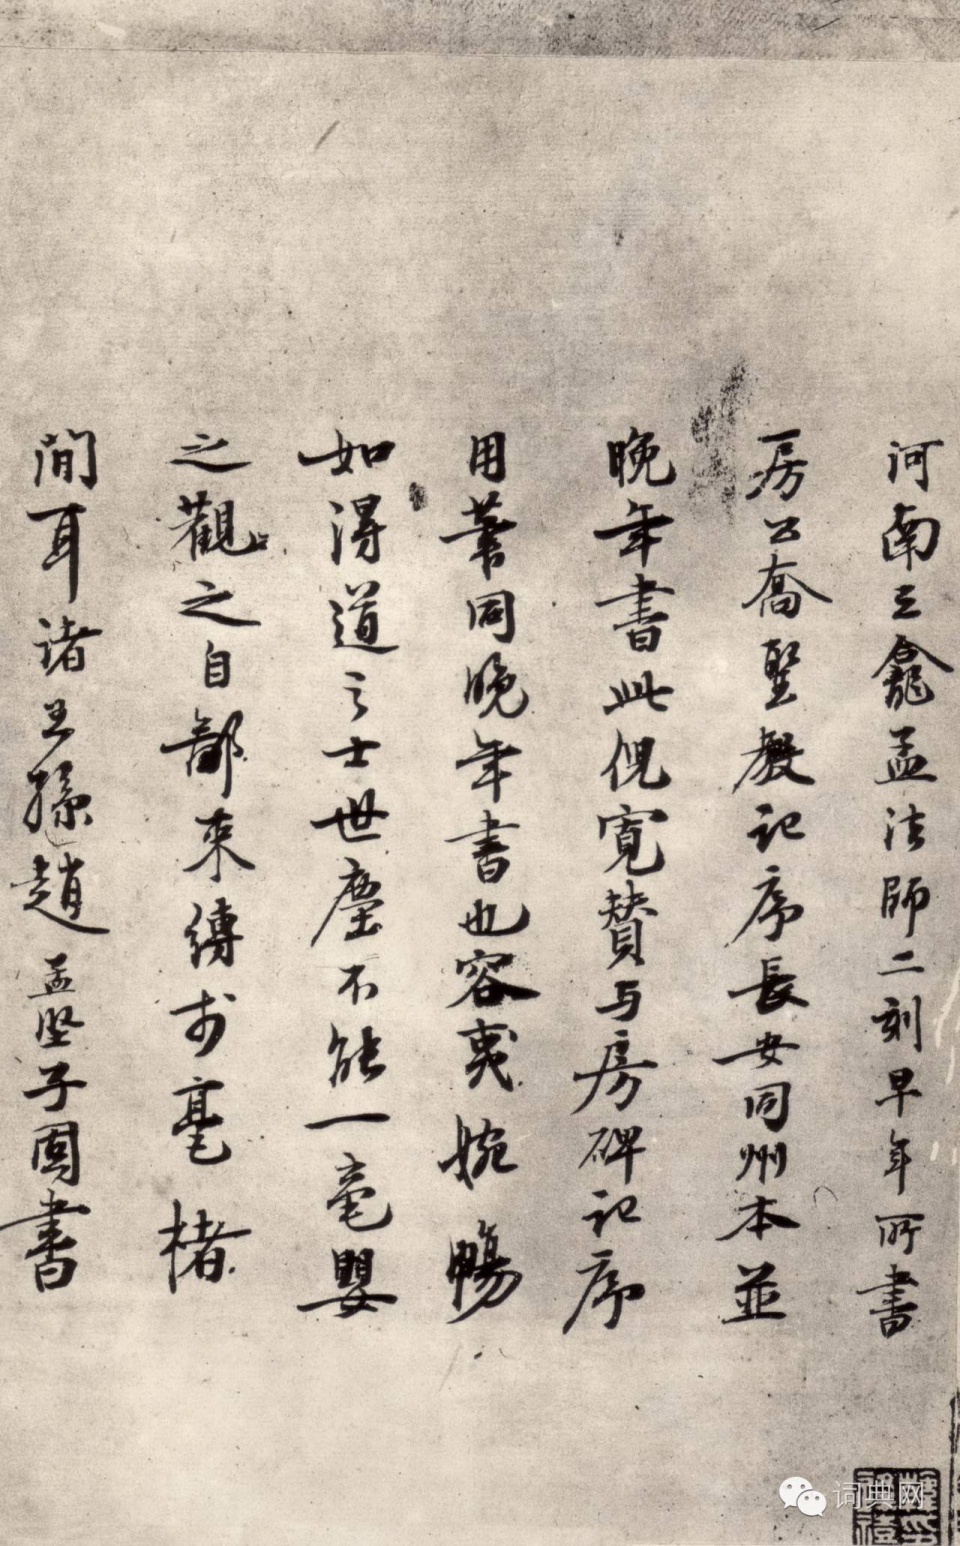 河南三龕孟法師二刻早年所書
房公喬聖教記序長安同州本並
晚年書此倪寬贊与房碑記序
用筆同晚年書也容夷婉暢
如得道之士世塵不能一毫嬰
之觀之自鄙束縛於毫楮
間耳諸王孫趙孟堅子固書
词典网